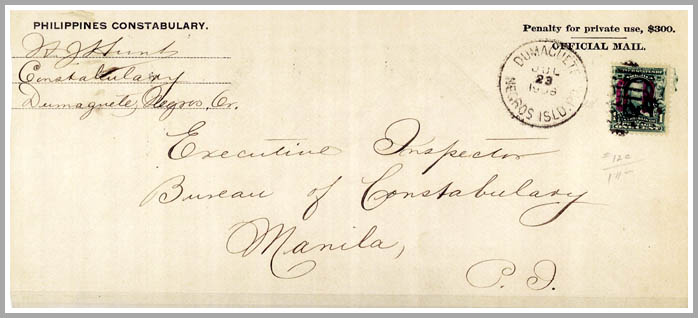 PHILIPPINES CONSTABULARY.
W J Hunt
Constabulary
Dumaguete, Negros, Or.
Penalty for private use, $300.
OFFICIAL MAIL.
DUMAGUETE
JUL
23
NEGROS ISLD. P.I.
Executive Inspector
Bureau of Constabulary
Manila,
P. I.